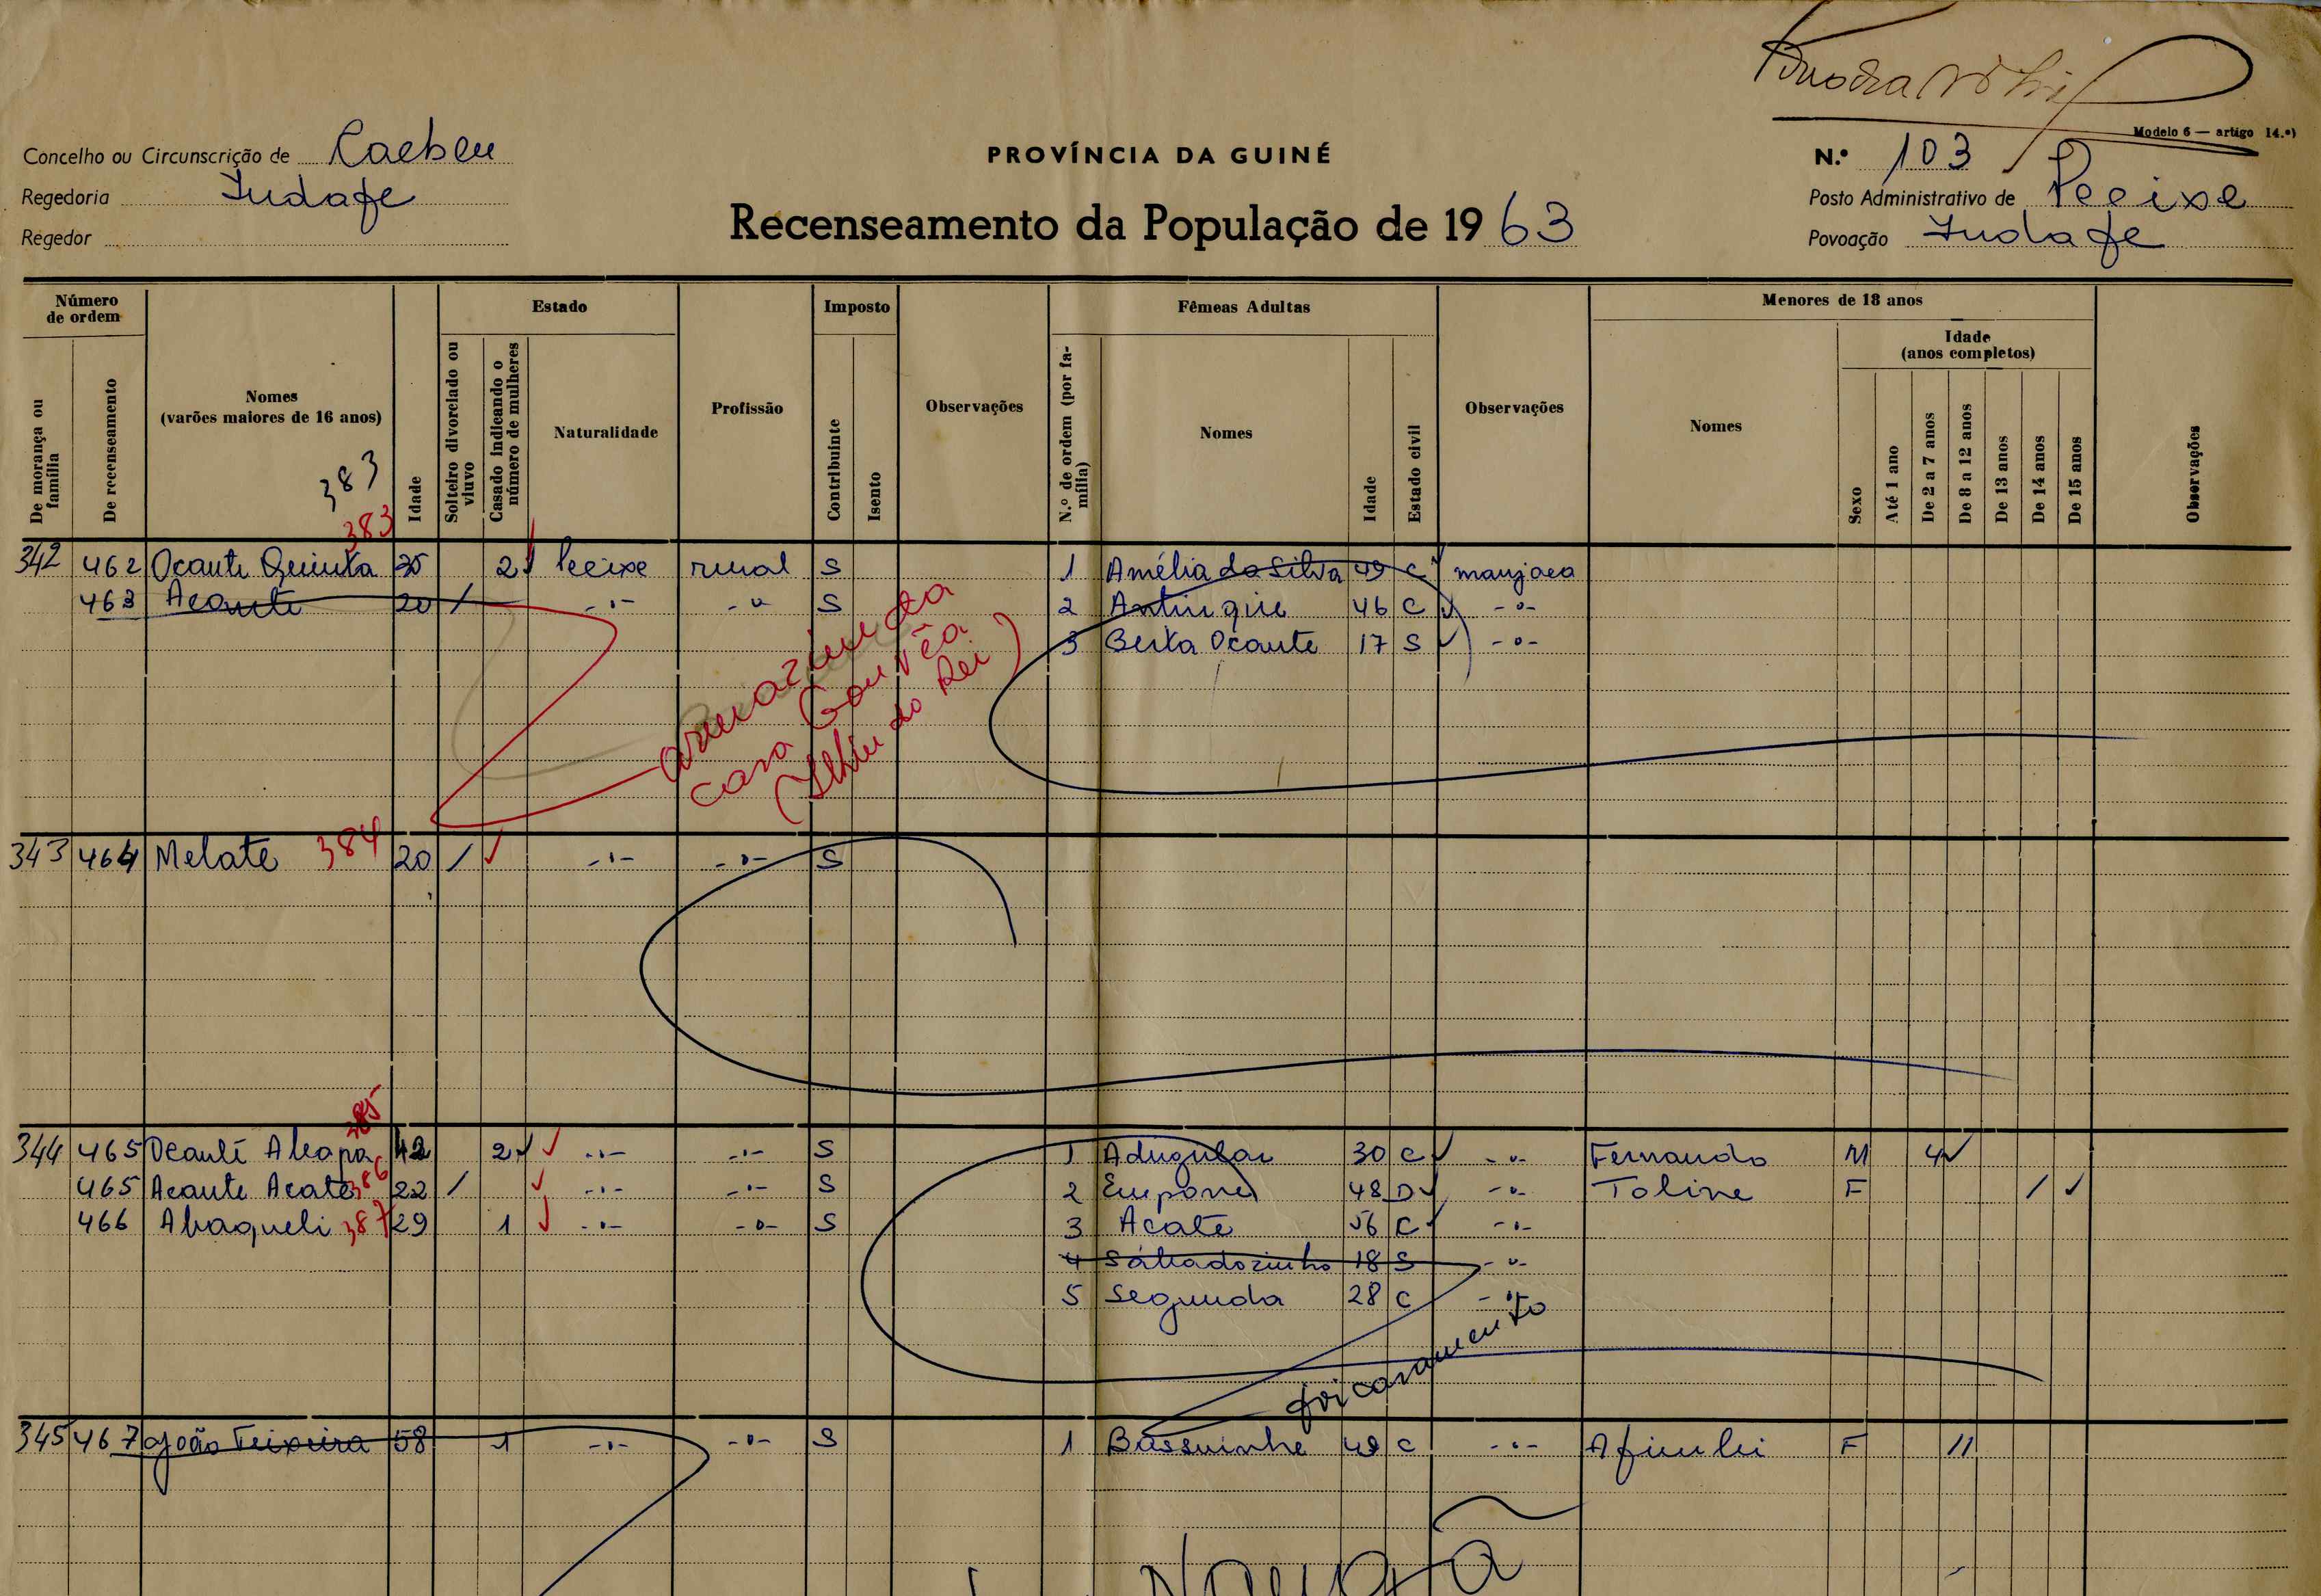 Modelo 6 — artigo 14.º)
Concelho ou Circunscrição de
PROVÍNCIA DA GUINÉ
N.º 103
Regedoria
Posto Administrativo de Pecixe
Regedor
Recenseamento da População de 1963
Povoação
Número de ordem
Estado
Imposto
Fêmeas Adultas
Menores de 18 anos
Idade
(anos completos)
De morança ou família
De recenseamento
Nomes
(varões maiores de 16 anos)
Idade
Solteiro divorciado ou viuvo
Casado indicando o número de mulheres
Naturalidade
Profissão
Contribuinte
Isento
Observações
N.º de ordem (por família)
Nomes
Idade
Estado civil
Observações
Nomes
Sexo
Até 1 ano
De 2 a 7 anos
De 8 a 12 anos
De 13 anos
De 14 anos
De 15 anos
Observações
383
383
342 462 Ocante Quinta 2 Pecixe rural S 1 Amélia da Silva 49 C manjaca
463 Acante 20 / -"- -"- S 2 46 C -"-
3 Berta Ocante 17 S -"-
casa Gouvêa
do Rei)
343 464 Melate 384 20 / -"- -"- S
385
344 465 42 2 -"- -"- S 1 30 C -"- Fernando M 4
465 Acante Acate 386 22 / -"- -"- S 2 48 D -"- Toline F /
466 387 29 1 -"- -"- S 3 Acate 56 C -"-
4 Sábadozinho 18 S -"-
5 Segunda 28 C -"-
foi casamento
345 467 João Teixeira 58 1 -"- -"- S 1 C -"- F 11